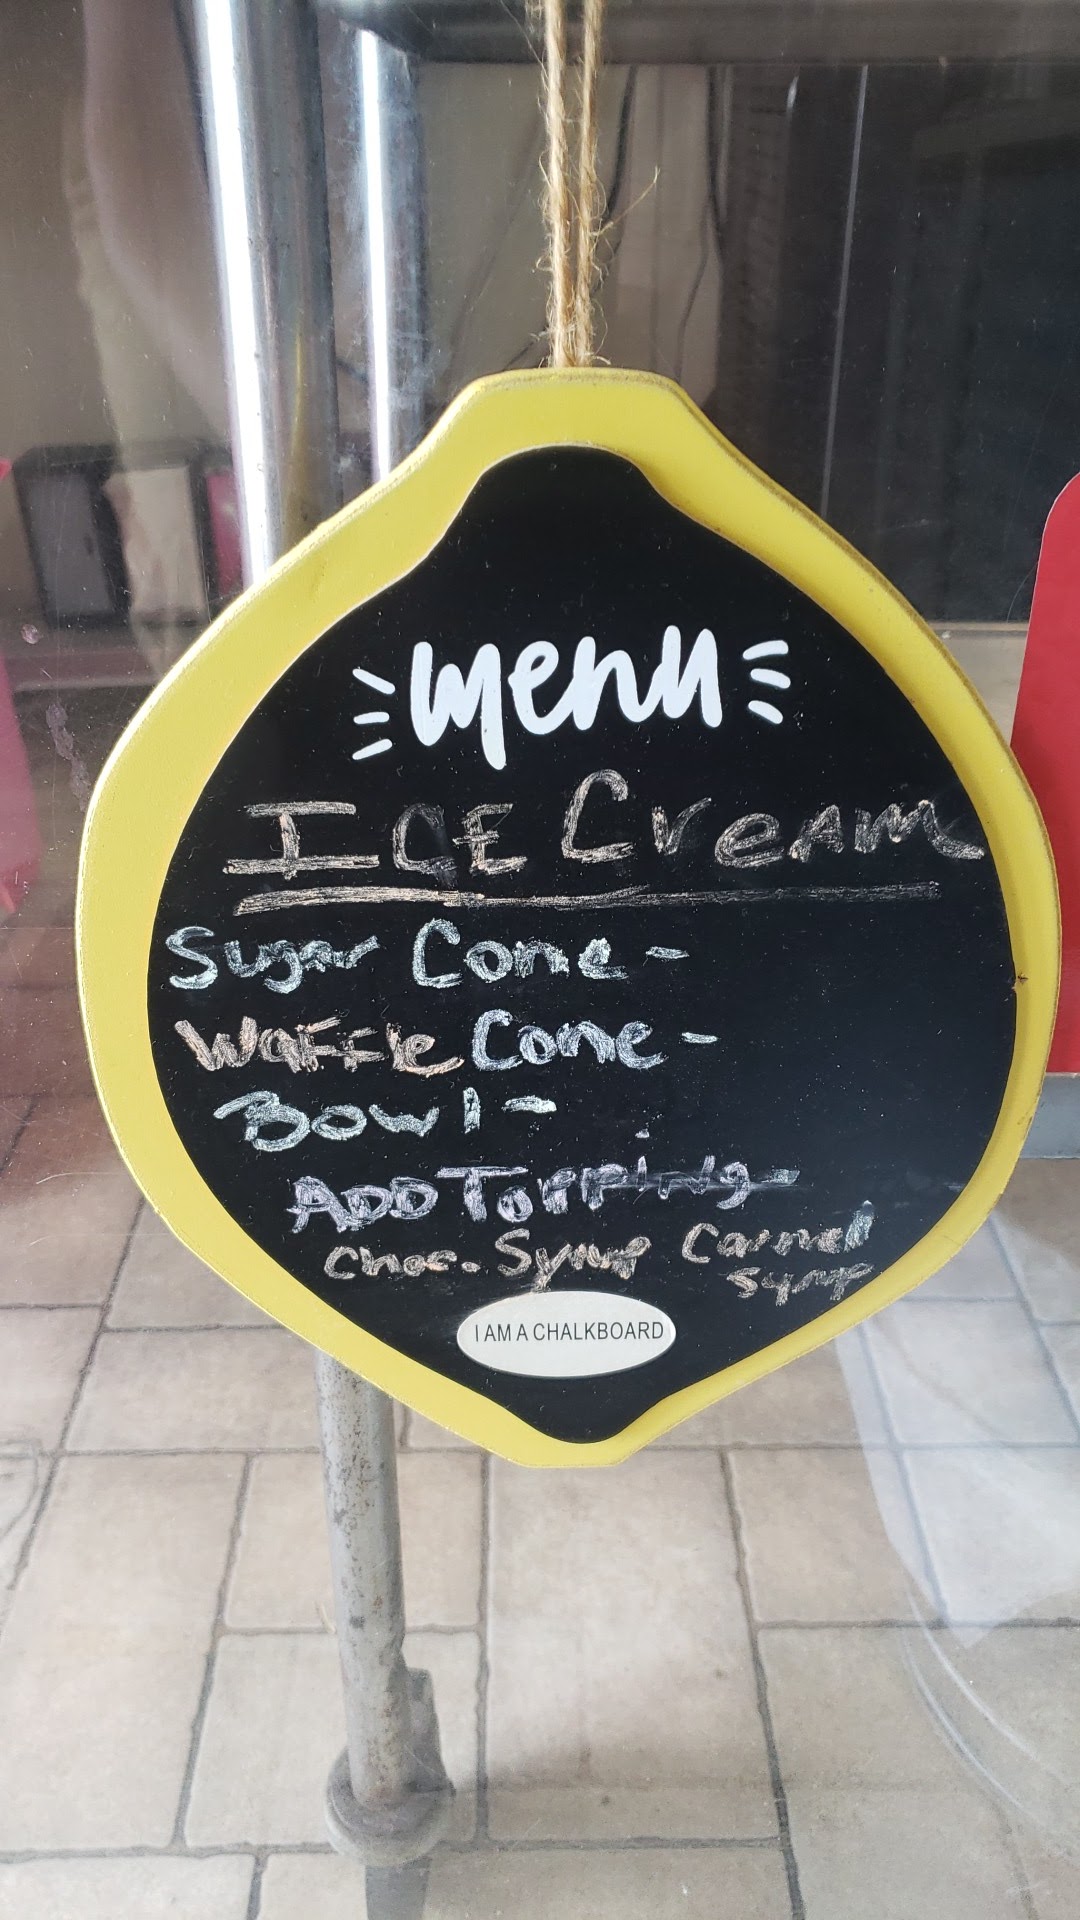 menu
ICE Cream
Sugar Cone -
Waffle Cone -
Bowl -
ADD Topping -
Choc. Syrup Carmel
Syrup
I AM A CHALKBOARD